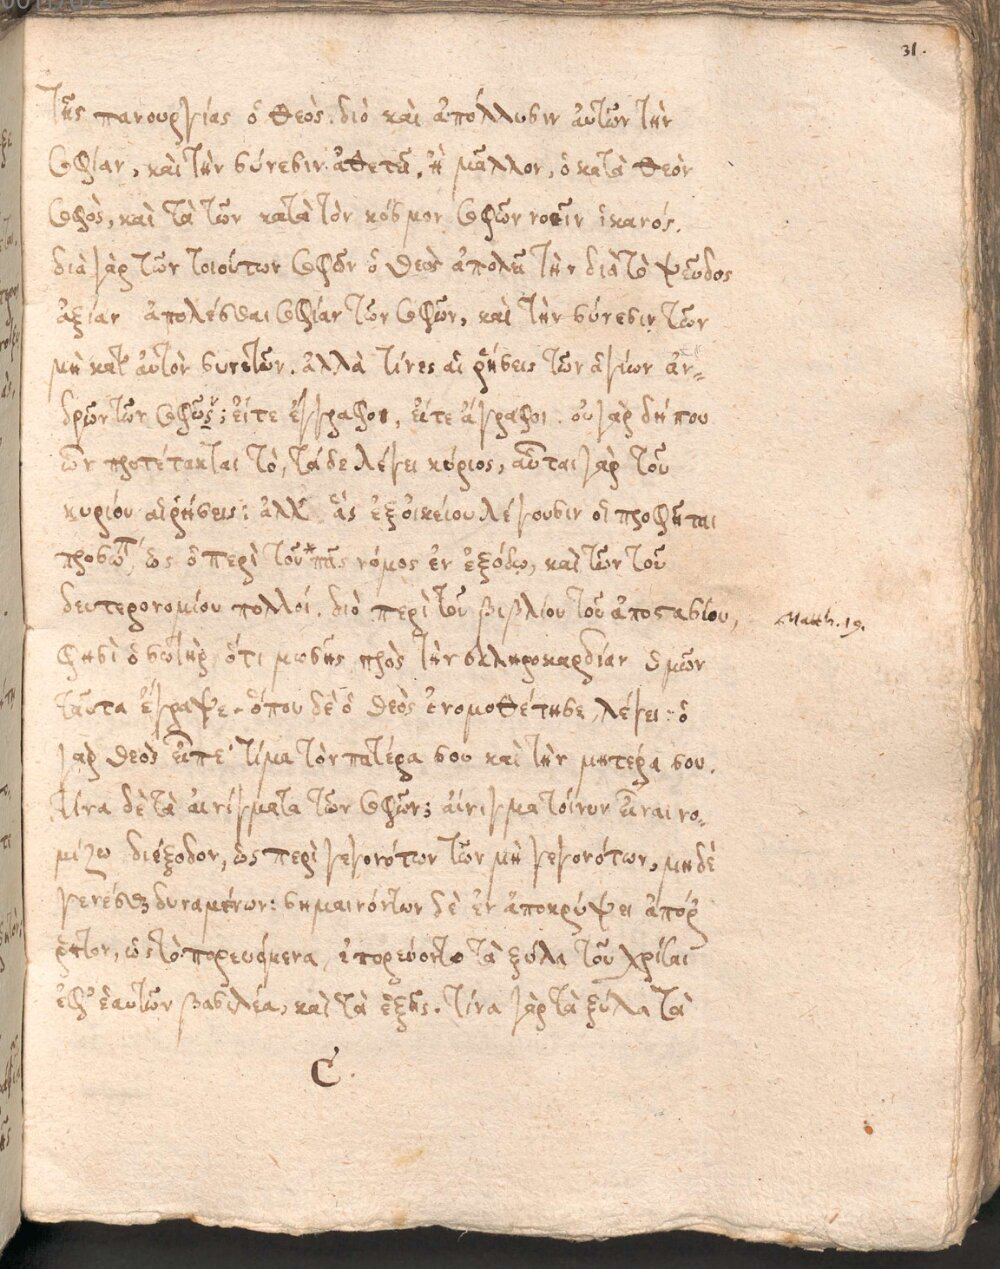 31.
τῆς πανουργίας ὁ θεός. διὸ καὶ ἀπόλλυσιν αὐτῶν τὴν
σοφίαν, καὶ τὴν σύνεσιν ἀθετεῖ, ἢ μᾶλλον, ὁ κατὰ θεὸν
σοφὸς, καὶ τὰ τῶν κατὰ τὸν κόσμον σοφῶν νοεῖν ἱκανός.
διὰ γὰρ τῶν τοιούτων σοφῶν ὁ θεὸς ἀπολεῖ τὴν διὰ τὸ ψεῦδος
ἀξίαν ἀπολέσθαι σοφίαν τῶν σοφῶν, καὶ τὴν σύνεσιν τῶν
μὴ κατ' αὐτὸν συνετῶν. ἀλλὰ τίνες αἱ ῥήσεις τῶν ἁγίων ἀν-
δρῶν τῶν σοφῶν; εἴτε ἔγγραφοι, εἴτε ἄγραφοι. οὐ γὰρ δήπου
ὧν προτέτακται τὸ, τάδε λέγει κύριος, αὗται γὰρ τοῦ
κυρίου αἱ ῥήσεις: ἀλλ' ἃς ἐξ οἰκείου λέγουσιν οἱ προφῆται
προσώπ, ὡς ὁ περὶ τοῦ * πᾶς νόμος ἐν ἐξόδῳ, καὶ τῶν τοῦ
δευτερονομίου πολλοί. διὸ περὶ τοῦ βιβλίου τοῦ ἀποστασίου,
Matth. 19.
φησὶ ὁ σωτὴρ, ὅτι μωσῆς πρὸς τὴν σκληροκαρδίαν ὑμῶν
ταῦτα ἔγραψε. ὅπου δὲ ὁ θεὸς ἐνομοθέτησε, λέγει: ὁ
γὰρ θεὸς εἶπε· τίμα τὸν πατέρα σου καὶ τὴν μητέρα σου.
τίνα δὲ τὰ αἰνίγματα τῶν σοφῶν; αἴνιγμα τοίνυν εἶναι νο-
μίζω διέξοδον, ὡς περὶ γεγονότων τῶν μὴ γεγονότων, μηδὲ
γενέσθαι δυναμένων: σημαινόντων δὲ ἐν ἀποκρύψει ἀπόρ
ρητον, ὡς τὸ πορευόμενα ἐπορεύοντο τὰ ξύλα τοῦ χρῖσαι
ἐφ' ἑαυτῶν βασιλέα, καὶ τὰ ἑξῆς. τίνα γὰρ τὰ ξύλα τὰ